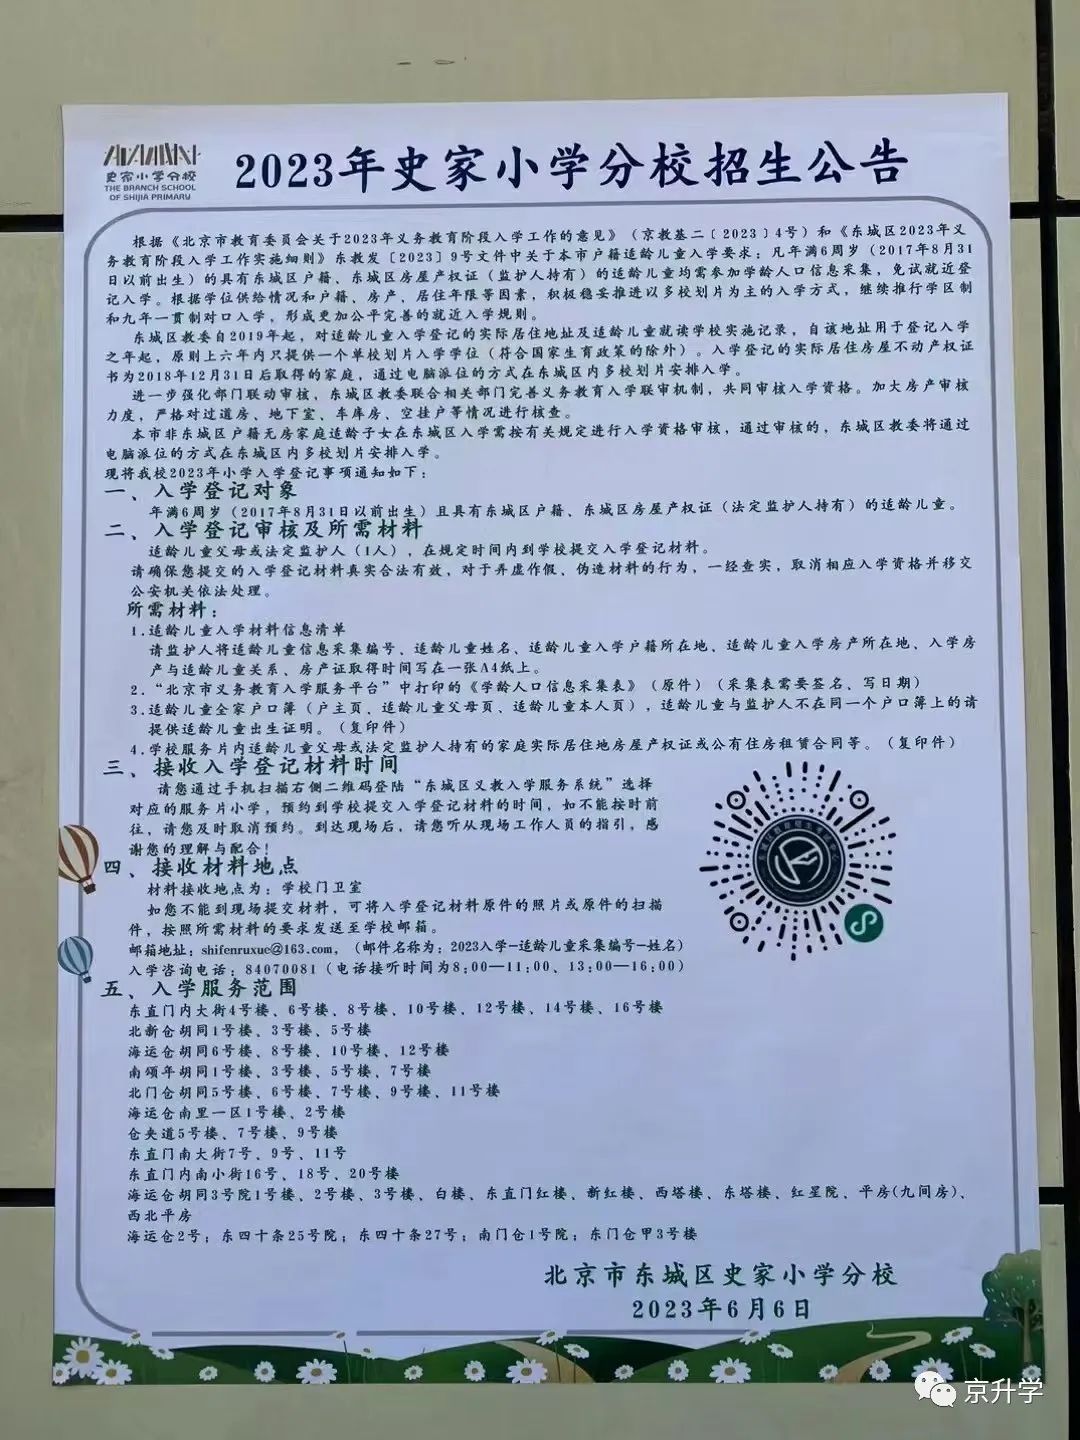 史家小学分校
THE BRANCH SCHOOL
OF SHIJIA PRIMARY
2023年史家小学分校招生公告
根据《北京市教育委员会关于2023年义务教育阶段入学工作的意见》（京教基二〔2023〕4号）和《东城区2023年义
务教育阶段入学工作实施细则》东教发〔2023〕9号文件中关于本市户籍适龄儿童入学要求：凡年满6周岁（2017年8月31
日以前出生）的具有东城区户籍、东城区房屋产权证（监护人持有）的适龄儿童均需参加学龄人口信息采集，免试就近登
记入学。根据学位供给情况和户籍、房产、居住年限等因素，积极稳妥推进以多校划片为主的入学方式，继续推行学区制
和九年一贯制对口入学，形成更加公平完善的就近入学规则。
东城区教委自2019年起，对适龄儿童入学登记的实际居住地址及适龄儿童就读学校实施记录，自该地址用于登记入学
之年起，原则上六年内只提供一个单校划片入学学位（符合国家生育政策的除外）。入学登记的实际居住房屋不动产权证
书为2018年12月31日后取得的家庭，通过电脑派位的方式在东城区内多校划片安排入学。
进一步强化部门联动审核，东城区教委联合相关部门完善义务教育入学联审机制，共同审核入学资格。加大房产审核
力度，严格对过道房、地下室、车库房、空挂户等情况进行核查。
本市非东城区户籍无房家庭适龄子女在东城区入学需按有关规定进行入学资格审核，通过审核的，东城区教委将通过
电脑派位的方式在东城区内多校划片安排入学。
现将我校2023年小学入学登记事项通知如下：
一、入学登记对象
年满6周岁（2017年8月31日以前出生）且具有东城区户籍、东城区房屋产权证（法定监护人持有）的适龄儿童。
二、入学登记审核及所需材料
适龄儿童父母或法定监护人（1人），在规定时间内到学校提交入学登记材料。
请确保您提交的入学登记材料真实合法有效，对于弄虚作假、伪造材料的行为，一经查实，取消相应入学资格并移交
公安机关依法处理。
所需材料：
1.适龄儿童入学材料信息清单
请监护人将适龄儿童信息采集编号、适龄儿童姓名、适龄儿童入学户籍所在地、适龄儿童入学房产所在地、入学房
产与适龄儿童关系、房产证取得时间写在一张A4纸上。
2.“北京市义务教育入学服务平台”中打印的《学龄人口信息采集表》（原件）（采集表需要签名、写日期）
3.适龄儿童全家户口簿（户主页、适龄儿童父母页、适龄儿童本人页），适龄儿童与监护人不在同一个户口簿上的请
提供适龄儿童出生证明。（复印件）
4.学校服务片内适龄儿童父母或法定监护人持有的家庭实际居住地房屋产权证或公有住房租赁合同等。（复印件）
三、接收入学登记材料时间
请您通过手机扫描右侧二维码登陆“东城区义教入学服务系统”选择
对应的服务片小学，预约到学校提交入学登记材料的时间，如不能按时前
往，请您及时取消预约。到达现场后，请您听从现场工作人员的指引，感
谢您的理解与配合！
四、接收材料地点
材料接收地点为：学校门卫室
如您不能到现场提交材料，可将入学登记材料原件的照片或原件的扫描
件，按照所需材料的要求发送至学校邮箱。
邮箱地址：shifenruxue@163.com，（邮件名称为：2023入学—适龄儿童采集编号—姓名）
入学咨询电话：84070081（电话接听时间为8:00—11:00、13:00—16:00）
五、入学服务范围
东直门内大街4号楼、6号楼、8号楼、10号楼、12号楼、14号楼、16号楼
北新仓胡同1号楼、3号楼、5号楼
海运仓胡同6号楼、8号楼、10号楼、12号楼
南颂年胡同1号楼、3号楼、5号楼、7号楼
北门仓胡同5号楼、6号楼、7号楼、9号楼、11号楼
海运仓南里一区1号楼、2号楼
仓夹道5号楼、7号楼、9号楼
东直门南大街7号、9号、11号
东直门内南小街16号、18号、20号楼
海运仓胡同3号院1号楼、2号楼、3号楼、白楼、东直门红楼、新红楼、西塔楼、东塔楼、红星院、平房(九间房)、
西北平房
海运仓2号；东四十条25号院；东四十条27号；南门仓1号院；东门仓甲3号楼
北京市东城区史家小学分校
2023年6月6日
京升学